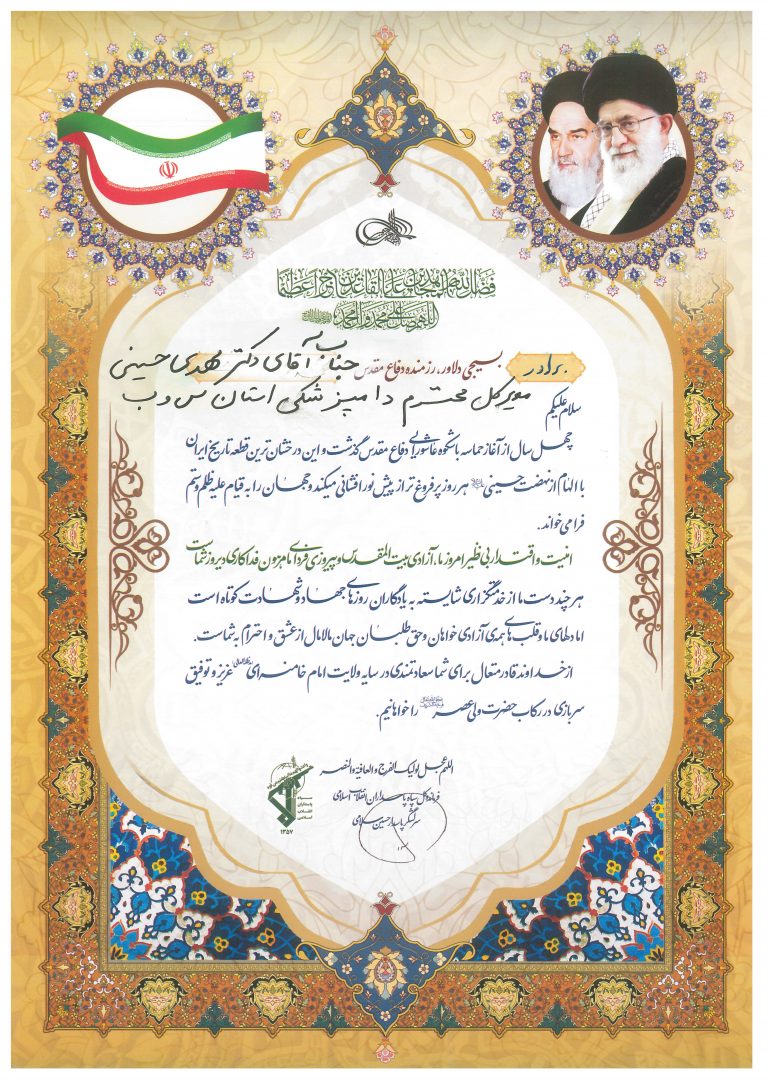 فضل الله المجاهدین علی القاعدین اجرا عظیما
اللهم صل علی محمد و آل محمد
برادر بسیجی دلاور، رزمنده دفاع مقدس جناب آقای دکتر مهدی حسینی
مدیر کل محترم دامپزشکی استان س و ب
سلام علیکم
چهل سال از آغاز حماسه باشکوه عاشورایی دفاع مقدس گذشت و این درخشان‌ترین قطعه تاریخ ایران
با الهام از نهضت حسینی هر روز پرفروغ‌تر از پیش نورافشانی میکند و جهان را به قیام علیه ظلم و ستم
فرا می‌خواند.
امنیت و اقتدار بی‌نظیر امروز ما، آزادی بیت المقدس و پیروزی فردای ما مرهون فداکاری دیروز شماست
هر چند دست ما از خدمتگزاری شایسته به یادگاران روزهای جهاد و شهادت کوتاه است
اما دلهای ما و قلب‌های همه‌ی آزادی خواهان و حق طلبان جهان مالامال از عشق و احترام به شماست.
از خداوند قادر متعال برای شما سعادتمندی در سایه ولایت امام خامنه‌ای عزیز و توفیق
سربازی در رکاب حضرت ولی عصر را خواهانیم.
اللهم عجل لولیک الفرج و العافیة و النصر
فرمانده کل سپاه پاسداران انقلاب اسلامی
سرلشگر پاسدار حسین سلامی
سپاه
پاسداران
انقلاب
اسلامی
۱۳۵۷